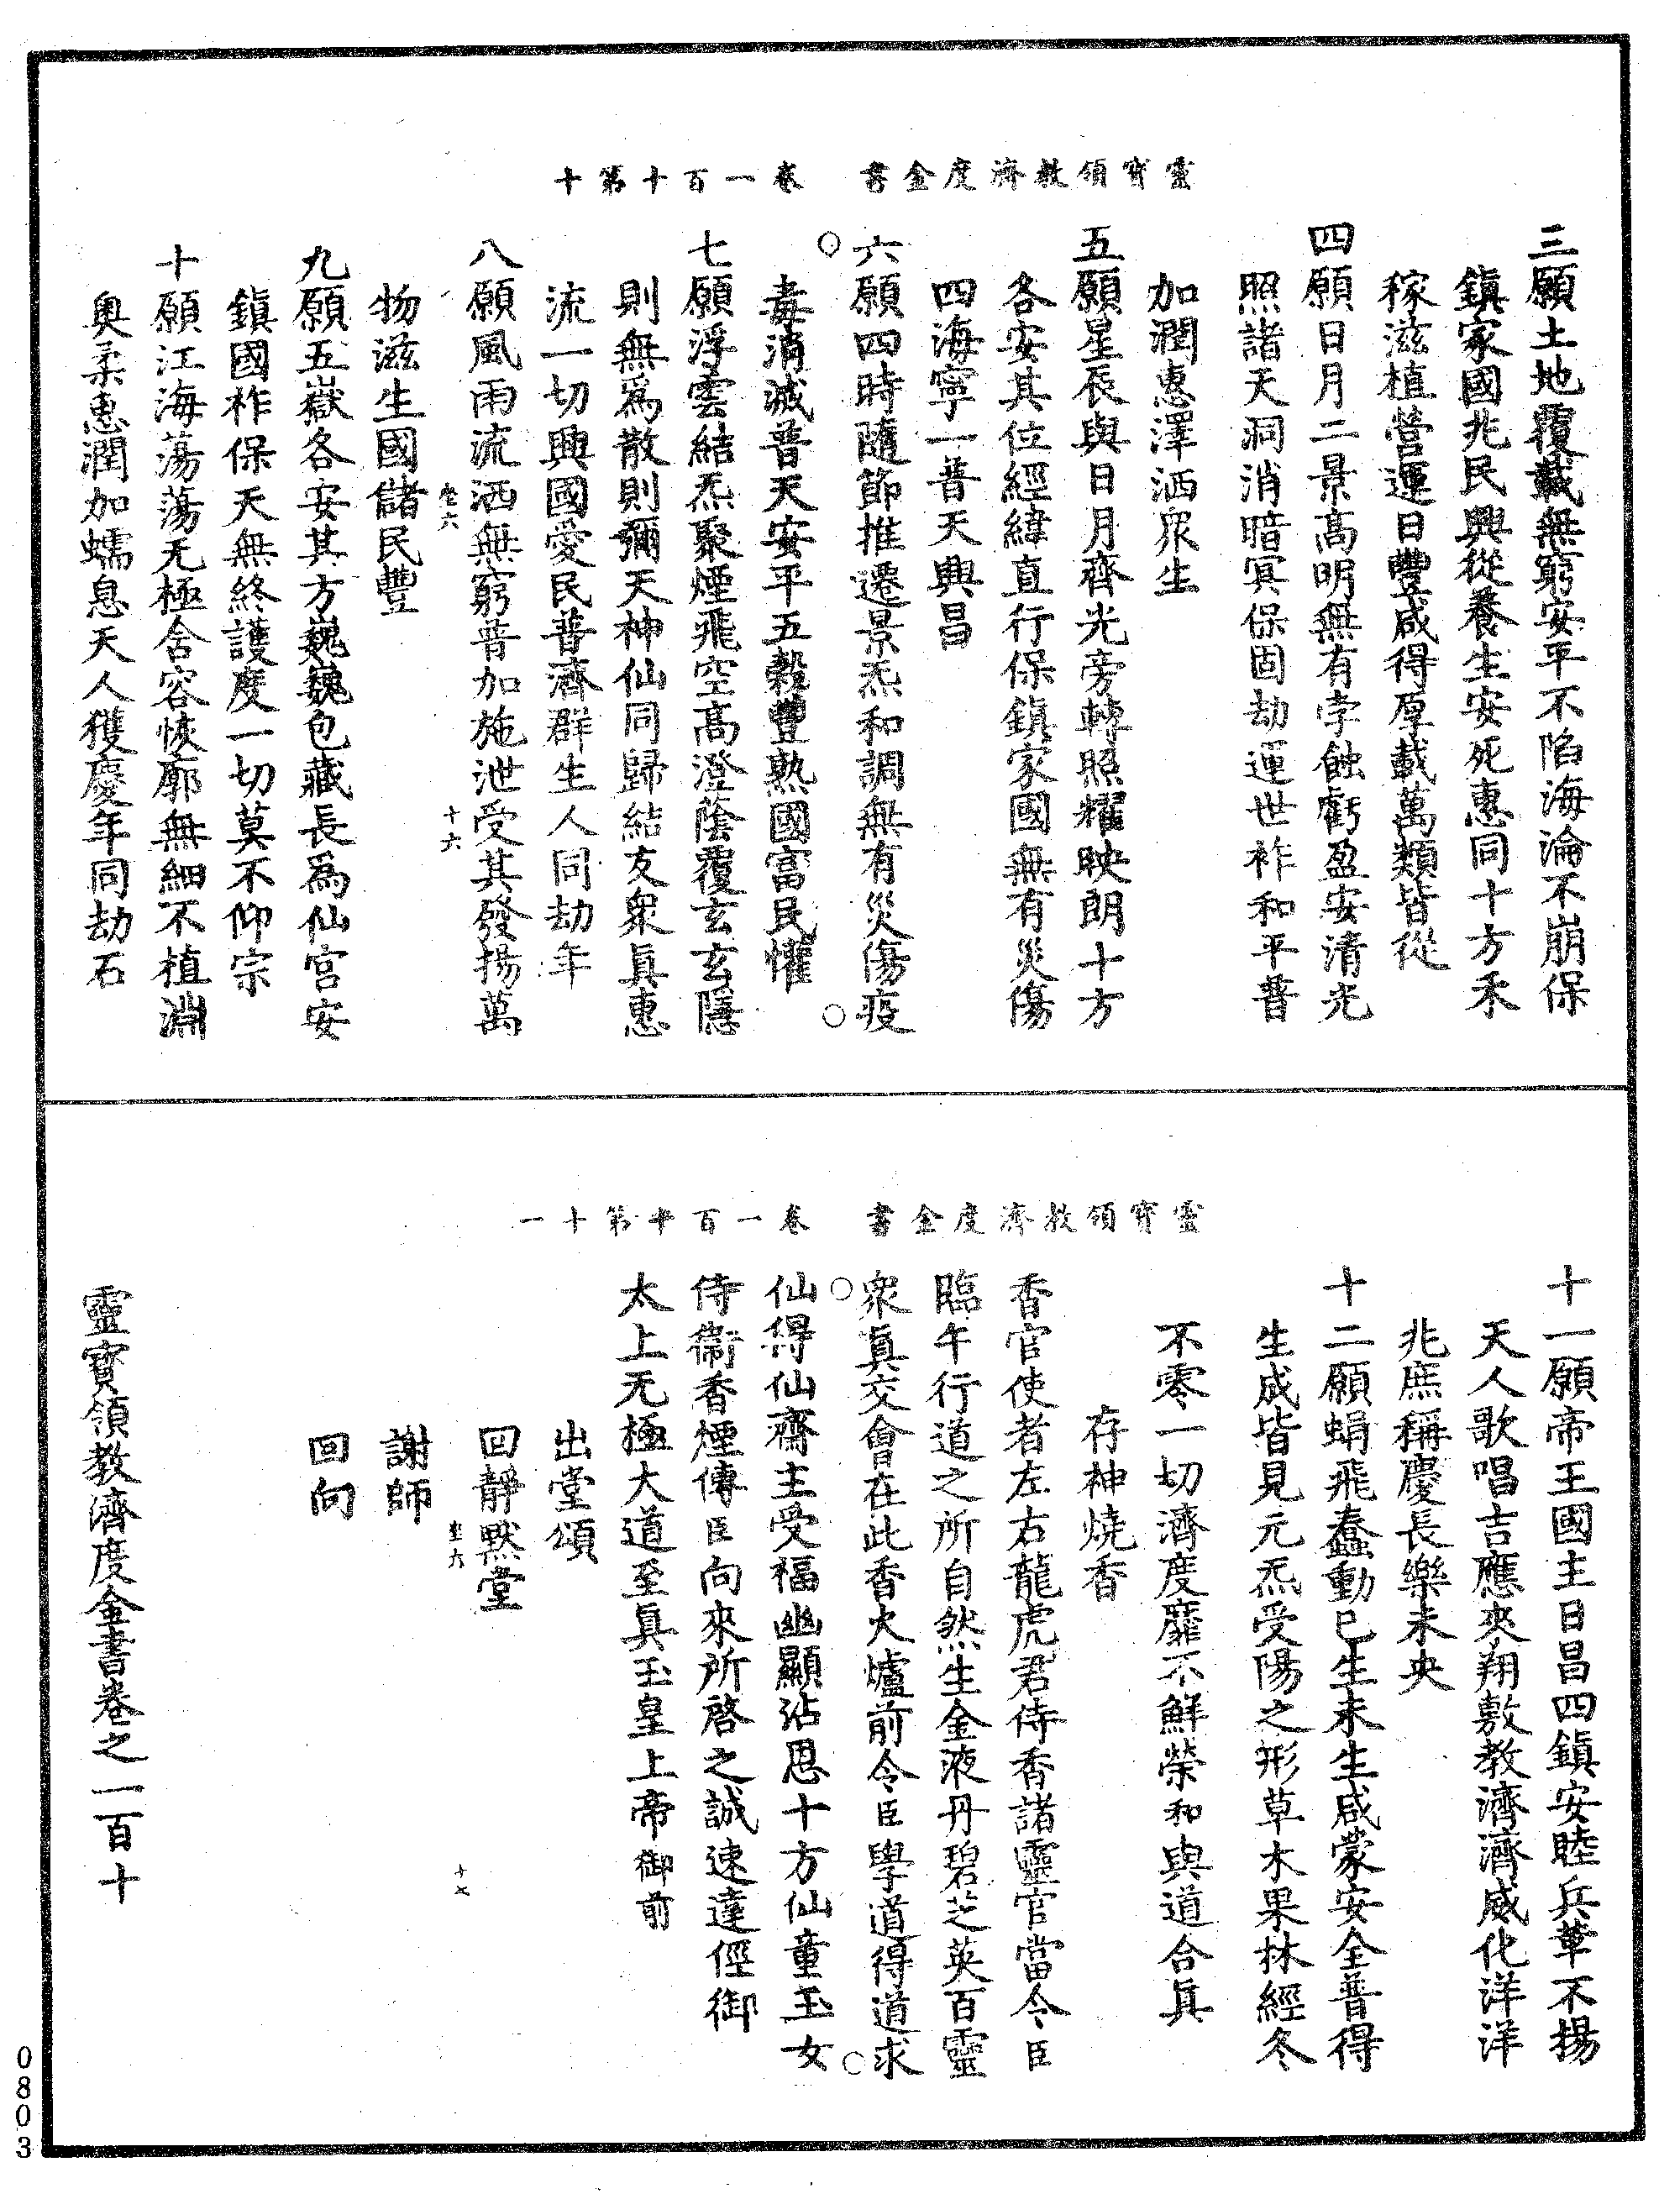 靈寶領教濟度金書　卷一百十第十
三願土地覆載無窮安平不陷海淪不崩保
鎮家國兆民興從養生安死惠同十方禾
稼滋植營運日豐咸得厚載萬類皆從
四願日月二景高明無有孛蝕虧盈安清光
照諸天洞消暗冥保固劫運世祚和平普
加潤惠澤洒眾生
五願星辰與日月齊光旁轉照耀映朗十方
各安其位經緯直行保鎮家國無有災傷
四海寧一普天興昌
六願四時隨節推遷景炁和調無有災傷疫
毒消滅普天安平五穀豐熟國富民懽
七願浮雲結炁聚煙飛空高澄蔭覆玄玄隱
則無為散則彌天神仙同歸結友眾真惠
流一切興國愛民普濟群生人同劫年
八願風雨流洒無窮普加施泄受其發揚萬
十六
物滋生國儲民豐
九願五嶽各安其方巍巍包藏長為仙宮安
鎮國祚保天無終護度一切莫不仰宗
十願江海蕩蕩无極含容恢廓無細不植淵
奧柔惠潤加蠕息天人獲慶年同劫石
靈寶領教濟度金書　卷一百十第十一
十一願帝王國主日昌四鎮安睦兵革不揚
天人歌唱吉應來翔敷教濟濟威化洋洋
兆庶稱慶長樂未央
十二願蜎飛蠢動已生未生咸蒙安全普得
生成皆見元炁受陽之形草木果林經冬
不零一切濟度靡不鮮榮和與道合真
存神燒香
香官使者左右龍虎君侍香諸靈官當令臣
臨午行道之所自然生金液丹碧芝英百靈
眾真交會在此香火爐前令臣學道得道求
仙得仙齋主受福幽顯沾恩十方仙童玉女
侍衞香煙傳臣向來所啓之誠速達俓御
太上无極大道至真玉皇上帝御前
出堂頌
回靜默堂
十七
謝師
回向
靈寶領教濟度金書卷之一百十
0803